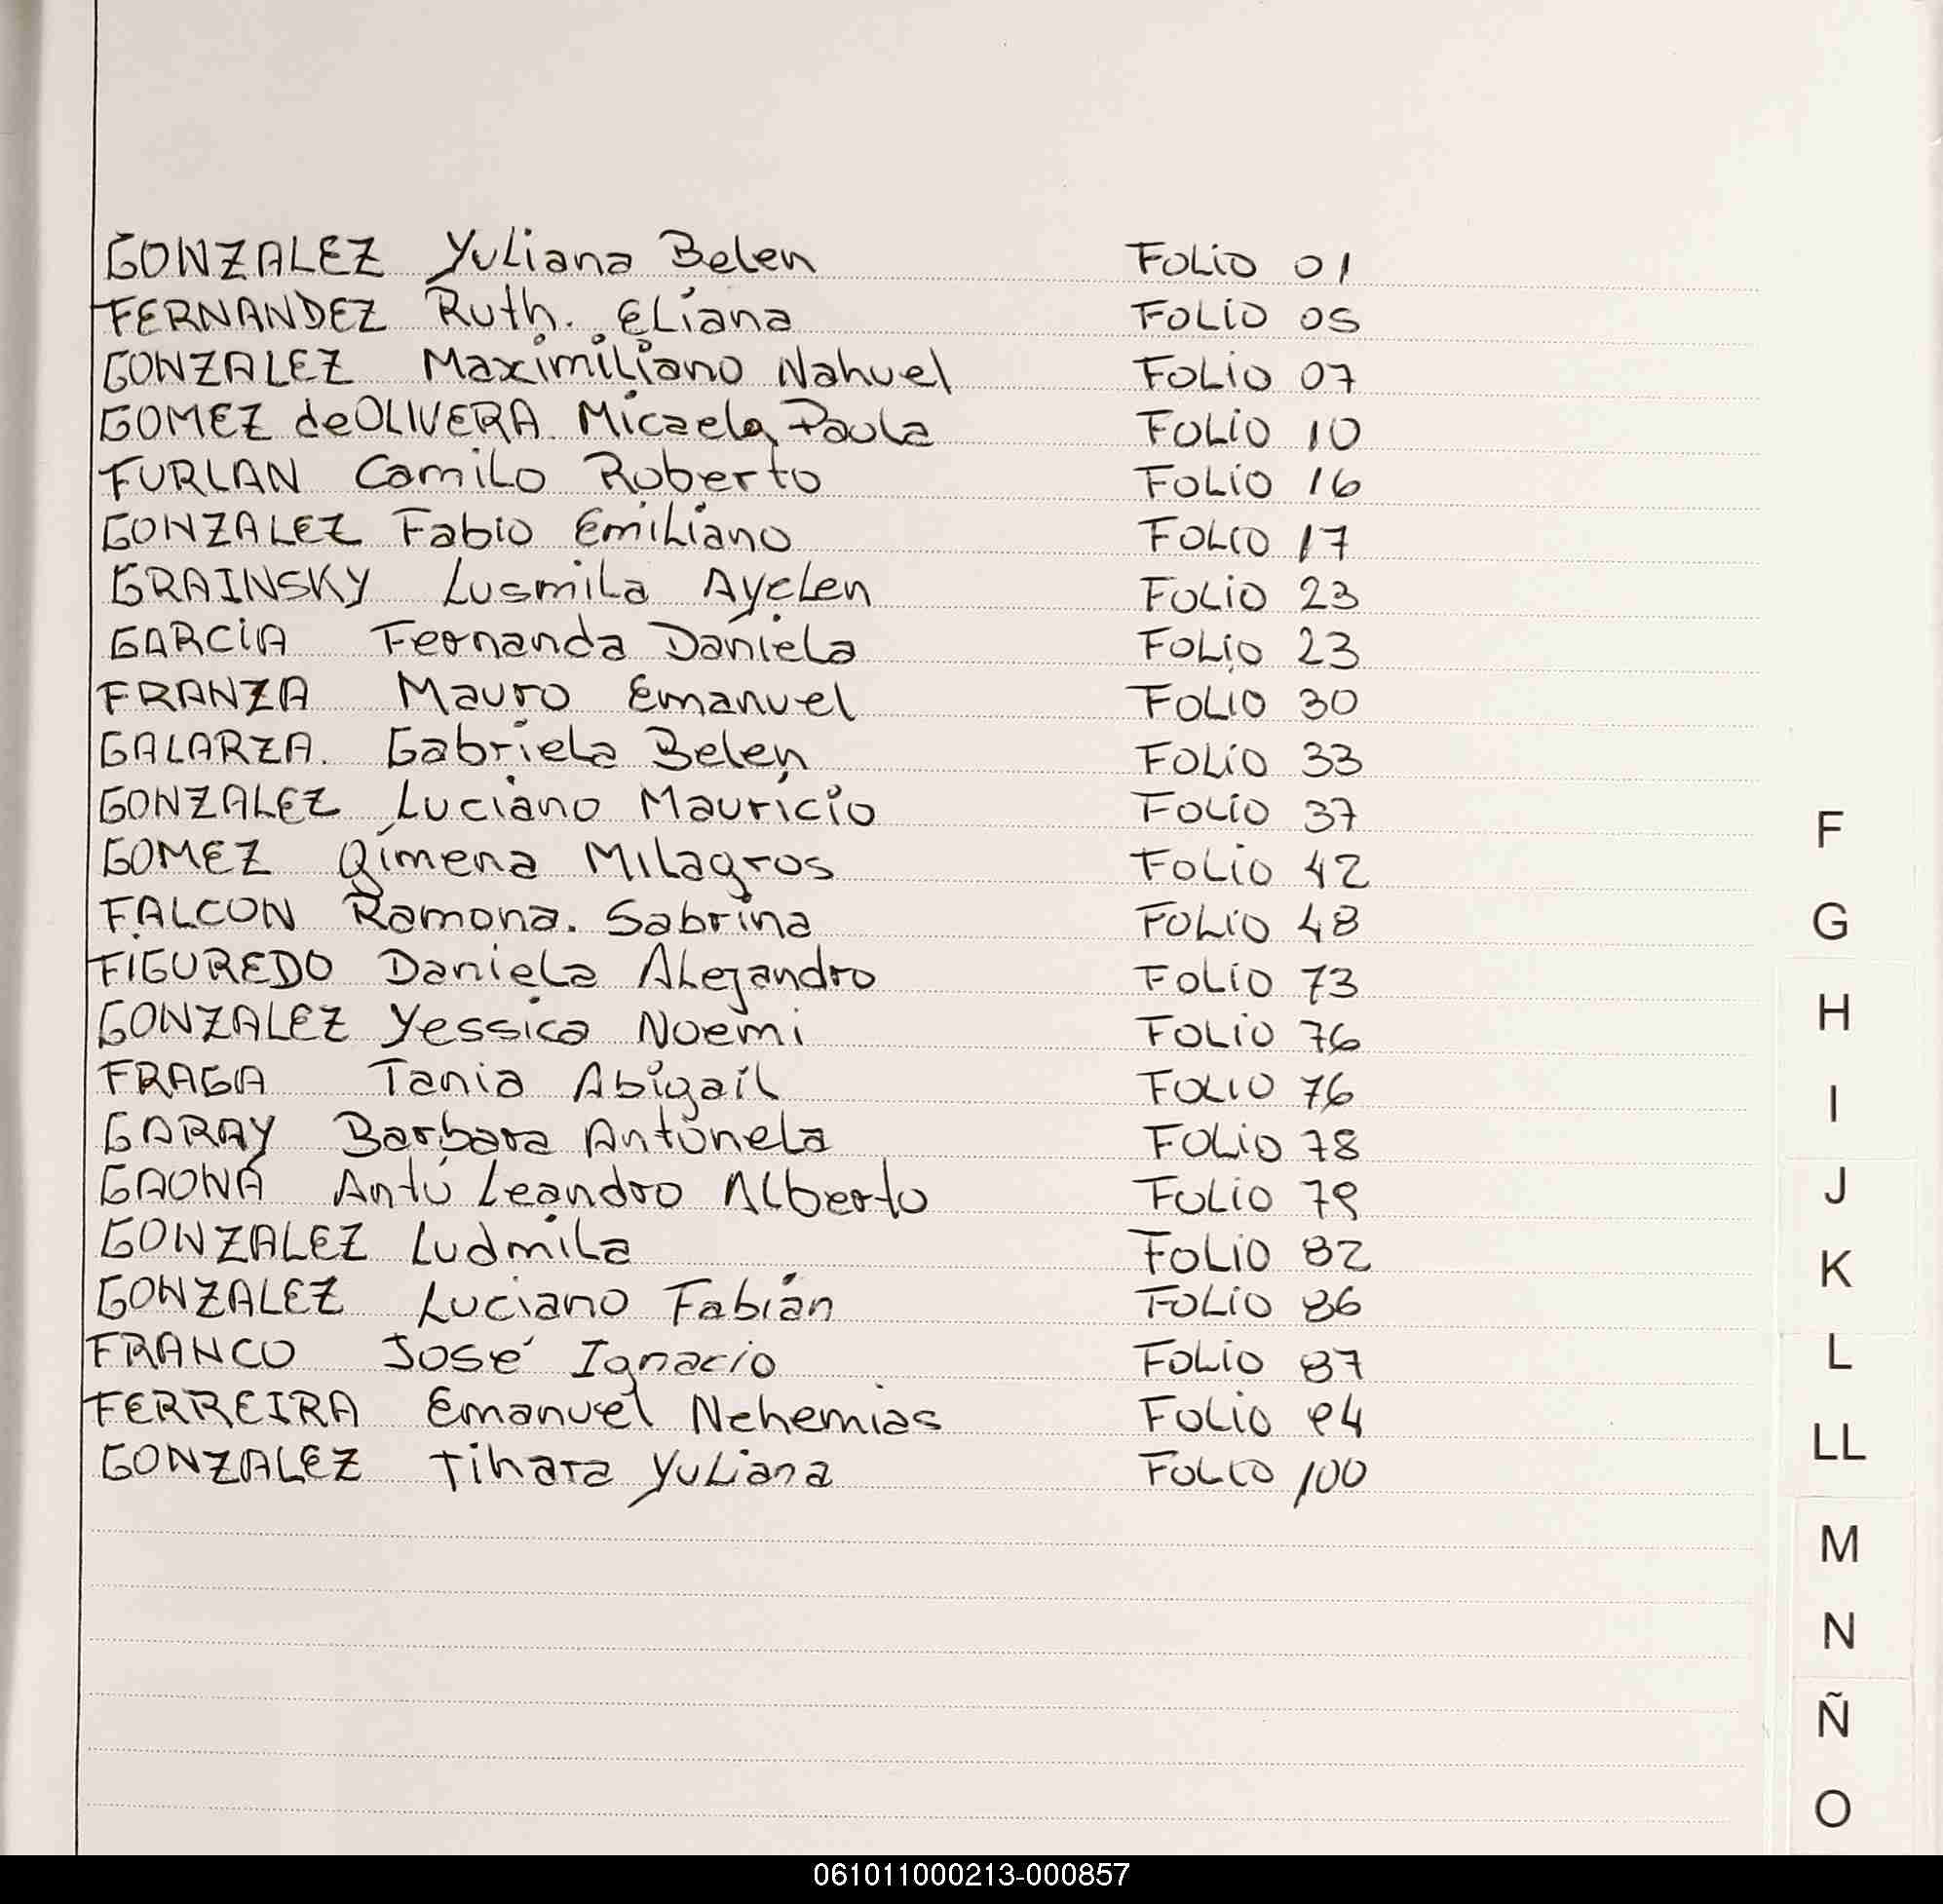 GONZALEZ Yuliana Belen FOLiO 01
FERNANDEZ Ruth. Eliana FOLiO 05
GONZALEZ Maximiliano Nahuel FOLiO 07
GOMEZ deOLIVERA Micaela Paula FOLiO 10
FURLAN Camilo Roberto FOLiO 16
GONZALEZ Fabio Emiliano FOLIO 17
GRAINSKY Lusmila Ayelen FOLiO 23
GARCiA Fernanda Daniela FOLiO 23
FRANZA Mauro Emanuel FOLIO 30
GALARZA. Gabriela Belen FOLiO 33
GONZALEZ Luciano Mauricio FOLiO 37
GOMEZ Gimena Milagros FOLiO 42
FALCON Ramona. Sabrina FOLiO 48
FIGUREDO Daniela Alejandro FOLiO 73
GONZALEZ Yessica Noemi FOLiO 76
FRAGA Tania Abigail FOLIO 76
GARAY Barbara Antonela FOLiO 78
GAONA Antú Leandro Alberto FOLiO 79
GONZALEZ Ludmila FOLiO 82
GONZALEZ Luciano Fabián FOLiO 86
FRANCO José Ignacio FOLiO 87
FERREIRA Emanuel Nehemias FOLiO 94
GONZALEZ Tihara Yuliana FOLIO 100
F
G
H
I
J
K
L
LL
M
N
Ñ
O
061011000213-000857